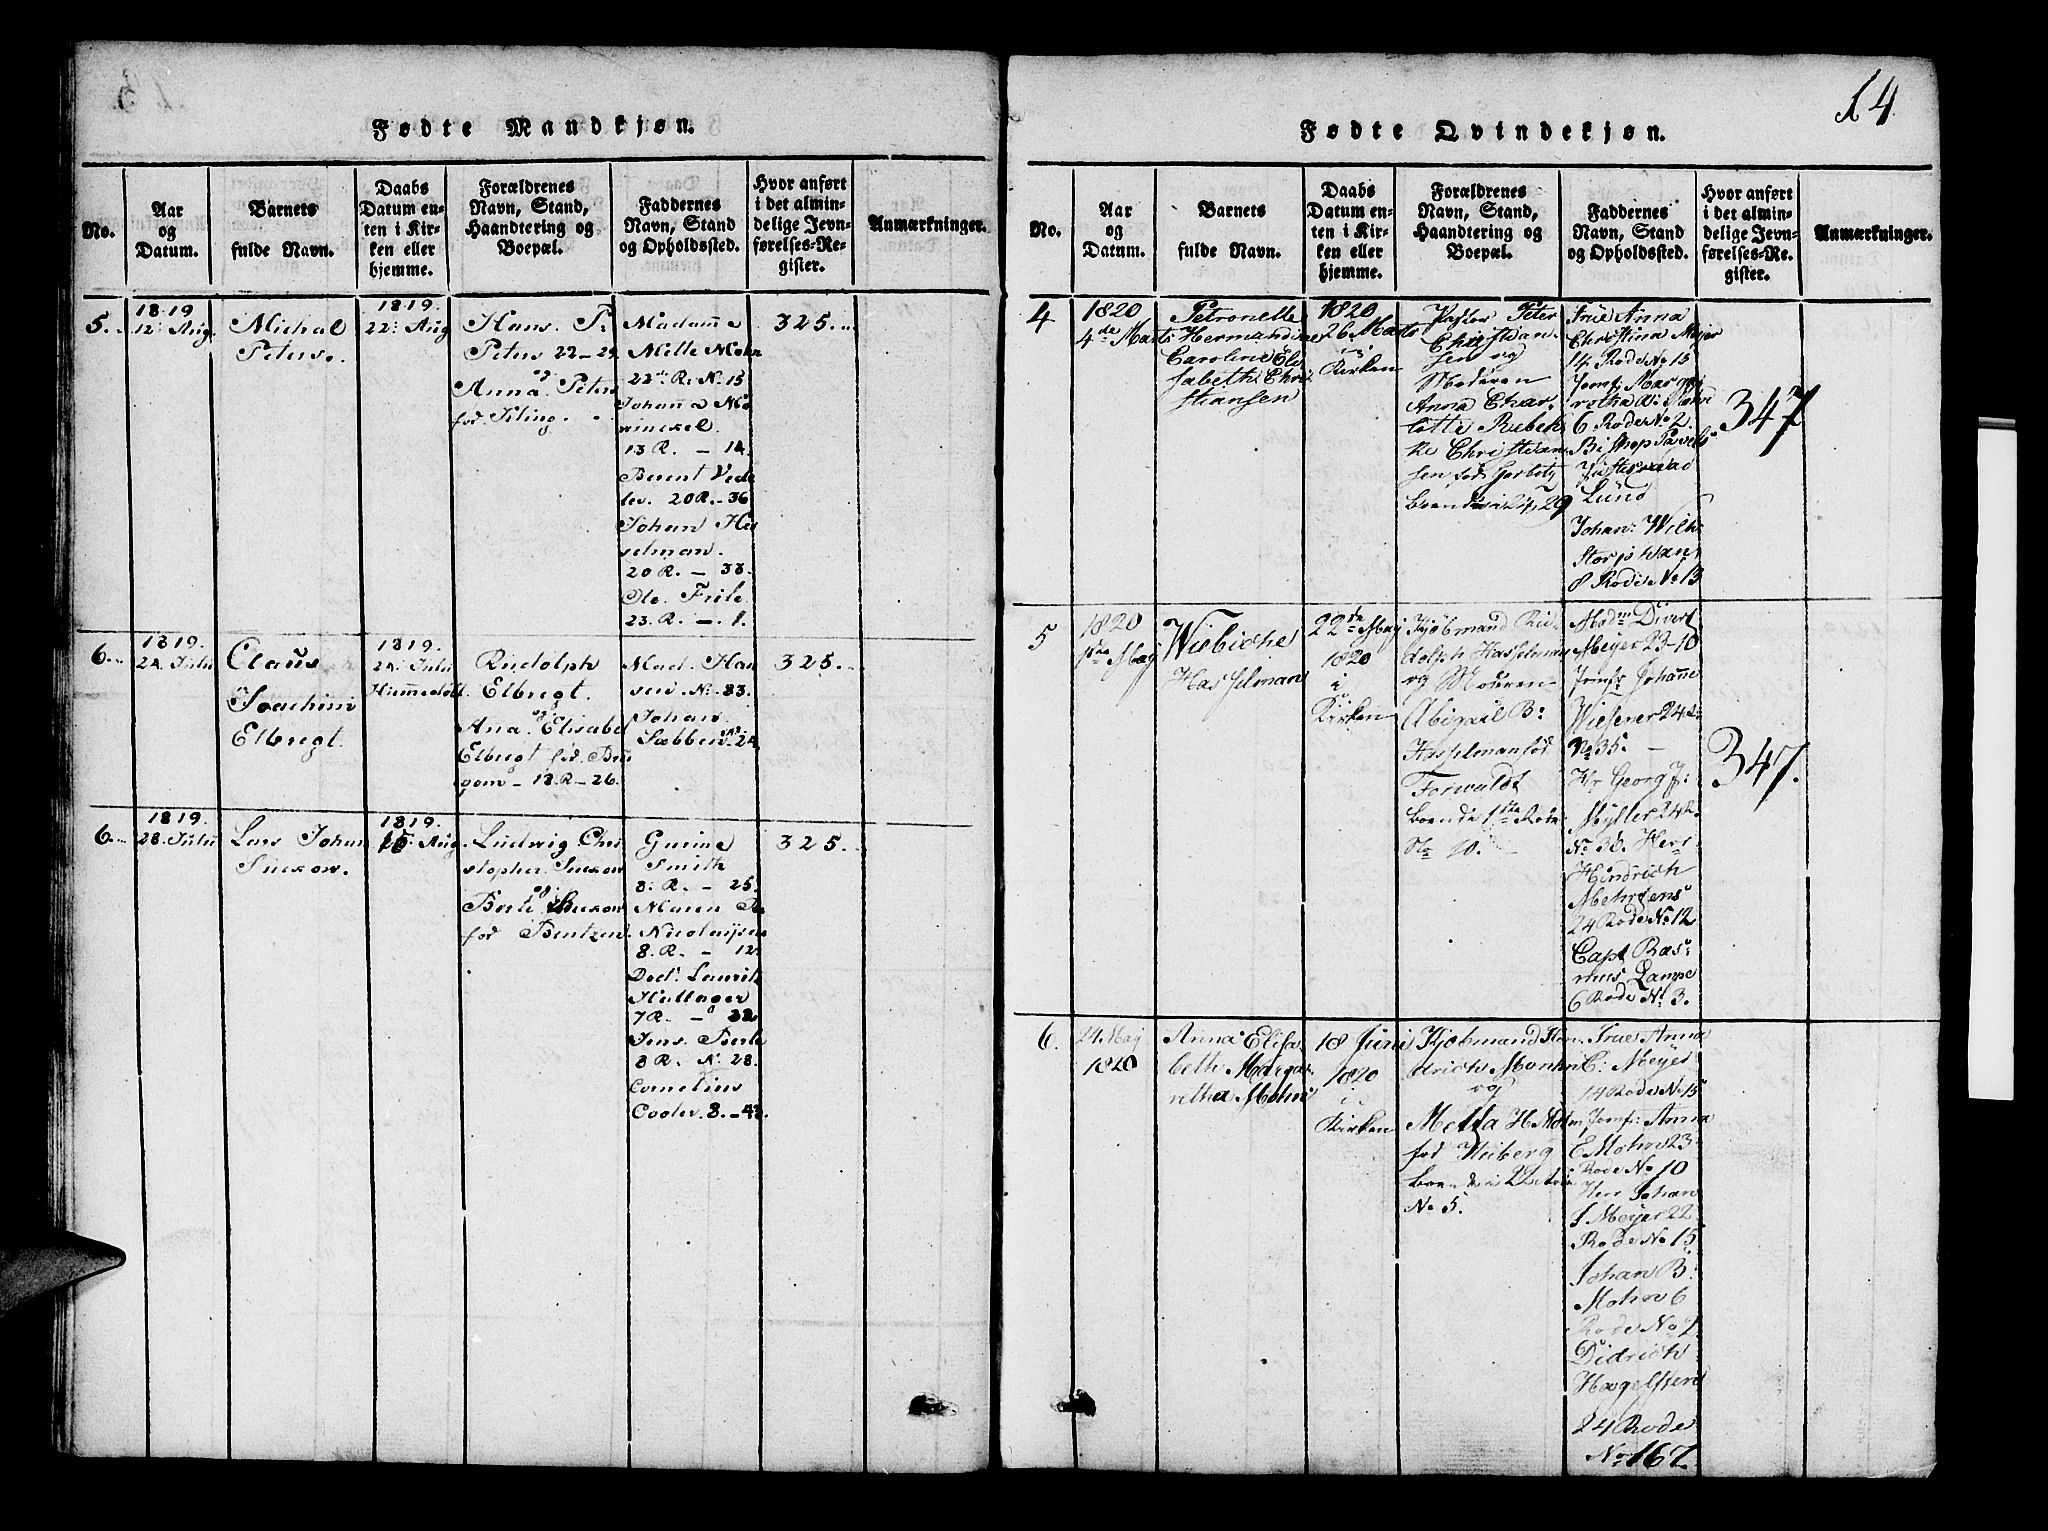 14
Fødte Mandkjøn.
No.
Aar
og
Datum.
Barnets
fulde Navn.
Daabs
Datum en-
ten i Kir-
ken eller
hjemme.
Forældrenes
Navn, Stand,
Haandtering og
Boepæl.
Faddernes
Navn, Stand
og Opholdssted.
Hvor anført
i det almin-
delige Jevn-
førelses-Re-
gister.
Anmærkninger.
5.
1819
12: Aug.
Michal
Peters.
1819.
22: Aug
Hans. P.
Peters 22-29
og
Anna Peters
fød
Madame
Mette Mohr
22: R. N. 15
Johanna
13 R. - 14.
Berent Ved
ler. 20 R. - 36
Johan Has
selman.
20 R. - 38.
Ole Friele
23. R. - 1.
325.
6.
1819.
24. Julii
Claus
Joachim
Elbregt.
1819.
24. Julii
Hiemmedöbt
Rudolph
Elbregt.
og
Ana Elisabet
Elbregt fød
13. R - 26.
Mad. Han
sen. N. 83.
Johan
325.
6.
1819.
28. Julii
Lars Johan
1819.
15. Aug
Ludvig Chri
stopher
og
fød Bentzen
Smith
8. R. - 25.
Maren
Nicolaysen
8. R. - 12.
Lauritz
7 R. - 32
Jens
8 R. N. 28.
Cornelius
8. - 43.
325.
Fødte Qvindekjøn.
No.
Aar
og
Datum.
Barnets
fulde Navn.
Daabs
Datum en-
ten i Kir-
ken eller
hjemme.
Forældrenes
Navn, Stand,
Haandtering og
Boepæl.
Faddernes
Navn, Stand
og Opholdssted.
Hvor anført
i det almin-
delige Jevn-
førelses-Re-
gister.
Anmærkninger.
4
1820
4de Marts
Petronelle
Hermandine
Caroline Eli
sabeth Chri
stiansen
1820
26 Marts
i
Kirken
Pastor Peter
Christian
sen og
Moderen
Anna Char
lotte Rebek
ke Christian
sen fød
boende i 24, 29
Frue Anna
Christina Meier
14 Rode No 15
Jomf: Marga
retha
6 Rode No 2.
Bishop Pavels
Lund
Johan: Wilh:
8 Rode No 13
347
5
1820
1ste May
Wiebiche
Hasselman
22de May
1820
i
Kirken
Kjøbmand Ru
dolph Hasselman
og Moderen
Abigail B:
Hasselman fød
Forwaldt
boende 1ste Rode
No 10.
Madm Divert
Meyer 23-10
Jomfr Johanne
Wiesener 24 R
No 35.
Hr Georg J:
Myller 24 R.
No 36. Herr
Hindrich
Mehrtens
24 Rode No 12
Capt Ras
mus Lampe
6 Rode No 3.
347.
6.
24 May
1820
Anna Elisa
beth Marga
retha Mohn
18 Juni
1820
i
Kirken
Kjøbmand Hen
drich Mohn
og
Metta H Mohn
fød Wiberg
boende i 22 Rode
No 5.
Frue Anna
C: Meyer
14 Rode No 15
Jomf: Anna
E Mohn 23
Rode No 10
Herr Johan
J Meyer 22
Rode No 15
Johan B:
Mohn 6
Rode No 2
Didrich
Hagelsteen
24 Rode
No 167